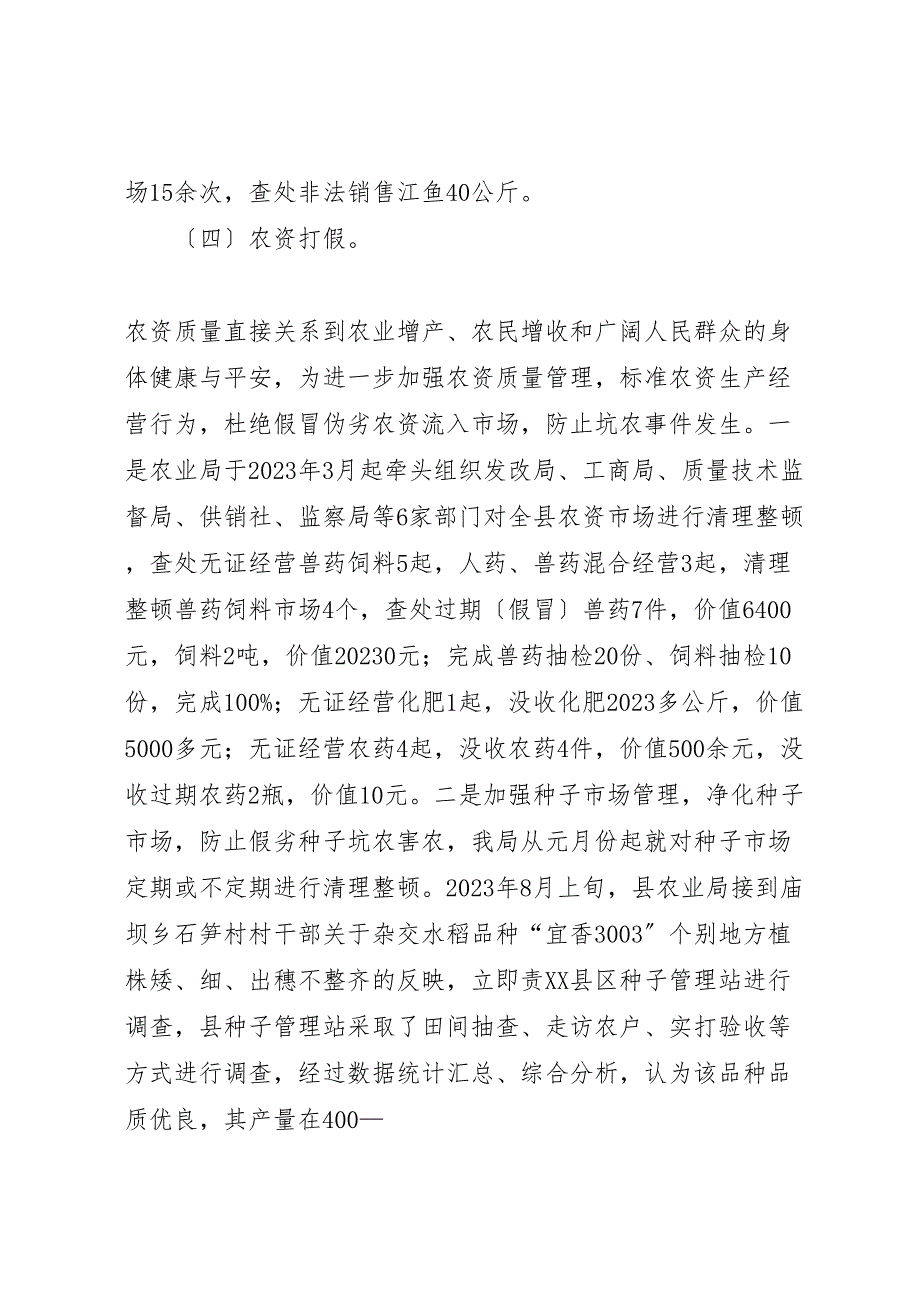 场15余次，查处非法销售江鱼40公斤。
〔四〕农资打假。
农资质量直接关系到农业增产、农民增收和广阔人民群众的身
体健康与平安，为进一步加强农资质量管理，标准农资生产经
营行为，杜绝假冒伪劣农资流入市场，防止坑农事件发生。一
是农业局于2023年3月起牵头组织发改局、工商局、质量技术监
督局、供销社、监察局等6家部门对全县农资市场进行清理整顿
，查处无证经营兽药饲料5起，人药、兽药混合经营3起，清理
整顿兽药饲料市场4个，查处过期〔假冒〕兽药7件，价值6400
元，饲料2吨，价值20230元；完成兽药抽检20份、饲料抽检10
份，完成100%；无证经营化肥1起，没收化肥2023多公斤，价值
5000多元；无证经营农药4起，没收农药4件，价值500余元，没
收过期农药2瓶，价值10元。二是加强种子市场管理，净化种子
市场，防止假劣种子坑农害农，我局从元月份起就对种子市场
定期或不定期进行清理整顿。2023年8月上旬，县农业局接到庙
坝乡石笋村村干部关于杂交水稻品种“宜香3003〞个别地方植
株矮、细、出穗不整齐的反映，立即责XX县区种子管理站进行
调查，县种子管理站采取了田间抽查、走访农户、实打验收等
方式进行调查，经过数据统计汇总、综合分析，认为该品种品
质优良，其产量在400—